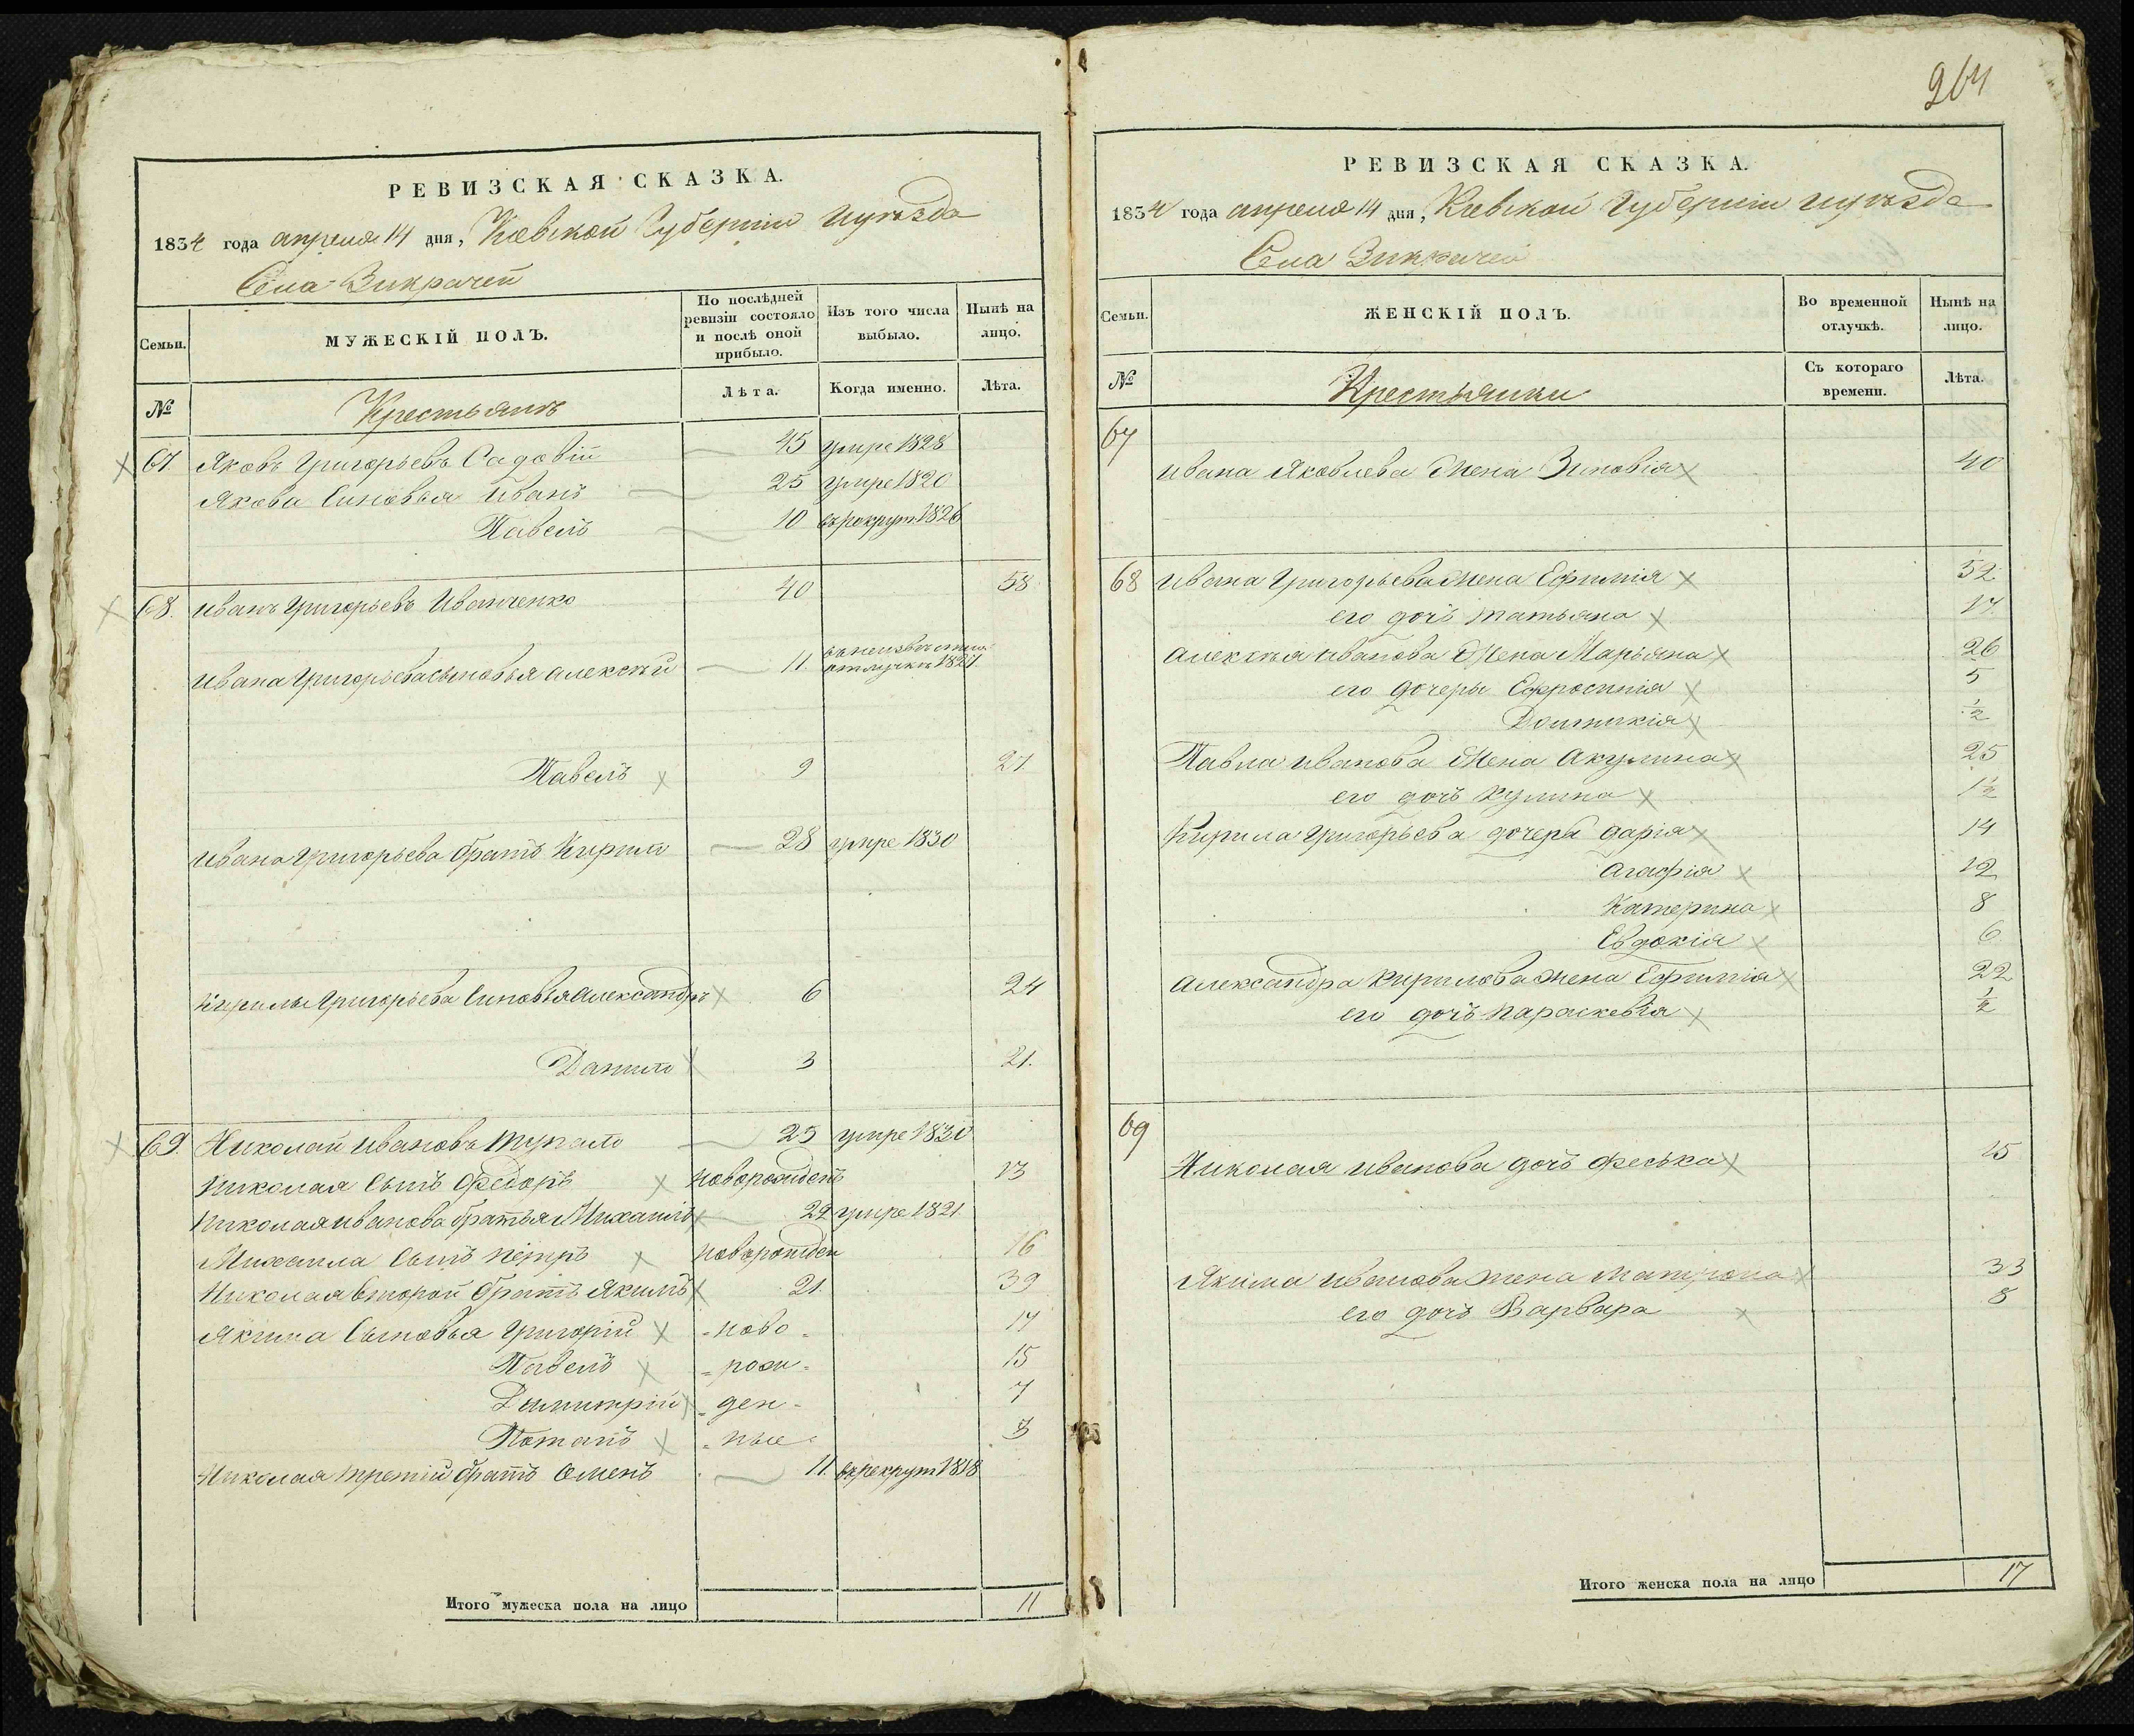 РЕВИЗСКАЯ СКАЗКА.
1834 года апреля 14 дня, Киевской Губернии и уезда
Села Викрачей
Семьи.
МУЖЕСКІЙ ПОЛЪ.
По послѣдней ревизіи состояло и послѣ оной прибыло.
Изъ того числа выбыло.
Нынѣ на лицо.
№
Крестьянъ
Лѣта.
Когда именно.
Лѣта.
67. Яковъ Григорьевъ Садовій 45 умре 1828
Якова Сыновья Иванъ 25 умре 1820
Павелъ 10 въ рекрут. 1826
68. Иванъ Григорьевъ Иванченко 40 58
Ивана Григорьева сыновья алексѣй 11. въ неизвѣстной отлучкѣ 1821
Павелъ 9 27.
Ивана Григорьева братъ Кирило 28 умре 1830
Кирилы Григорьева Сыновья александръ 6 24
Данило 3 21.
69. Николай Ивановъ 25 умре 1830
Николая Сынъ Федоръ новорожденъ 13
Николая иванова братья Михаилъ 29 умре 1821
Михаила Сынъ Петръ новорожден 16
Николая второй братъ Якимъ 21. 39
Якима Сыновья Григорій - ново - 17
Павелъ - рож - 15
Димитрій - ден - 7
Потапъ - ные - 3
Николая третій братъ Семенъ 11. въ рекрут 1818
Итого мужеска пола на лицо 11
264
РЕВИЗСКАЯ СКАЗКА.
1834 года апреля 14 дня, Киевской Губернии и уезда
Села Викрачей
Семьи.
ЖЕНСКІЙ ПОЛЪ.
Во временной отлучкѣ.
Нынѣ на лицо.
№
Крестьянки
Съ котораго времени.
Лѣта.
67
Ивана Яковлева Жена Зиновія 40
68 Ивана Григорьева жена Ефимія 52
его дочь татьяна 17.
алексѣя иванова Жена Марьяна 26
его дочеры Ефросинія 5
Домникія ½
Павла иванова Жена Акулина 25
его дочь Кулина 1½
Кирила Григорьева дочеры дарія 14
агафія 12
Катерина 8
Евдокія 6
александра Кирилова жена Ефимія 22
его дочь параскевія ½
69
Николая иванова дочь феська 15
Якима иванова жена матрона 33
его дочь Варвара 8
Итого женска пола на лицо 17